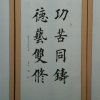 功苦同鑄
德藝雙脩